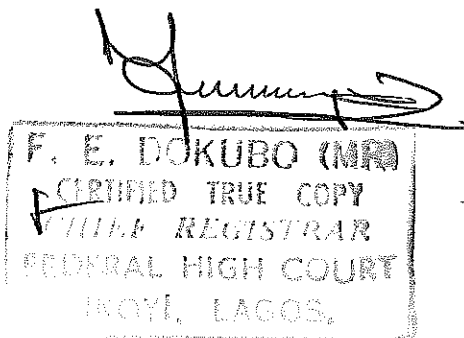 F. E. DOKUBO (MR)
CERTIFIED TRUE COPY
CHIEF REGISTRAR
FEDERAL HIGH COURT
IKOYI, LAGOS.